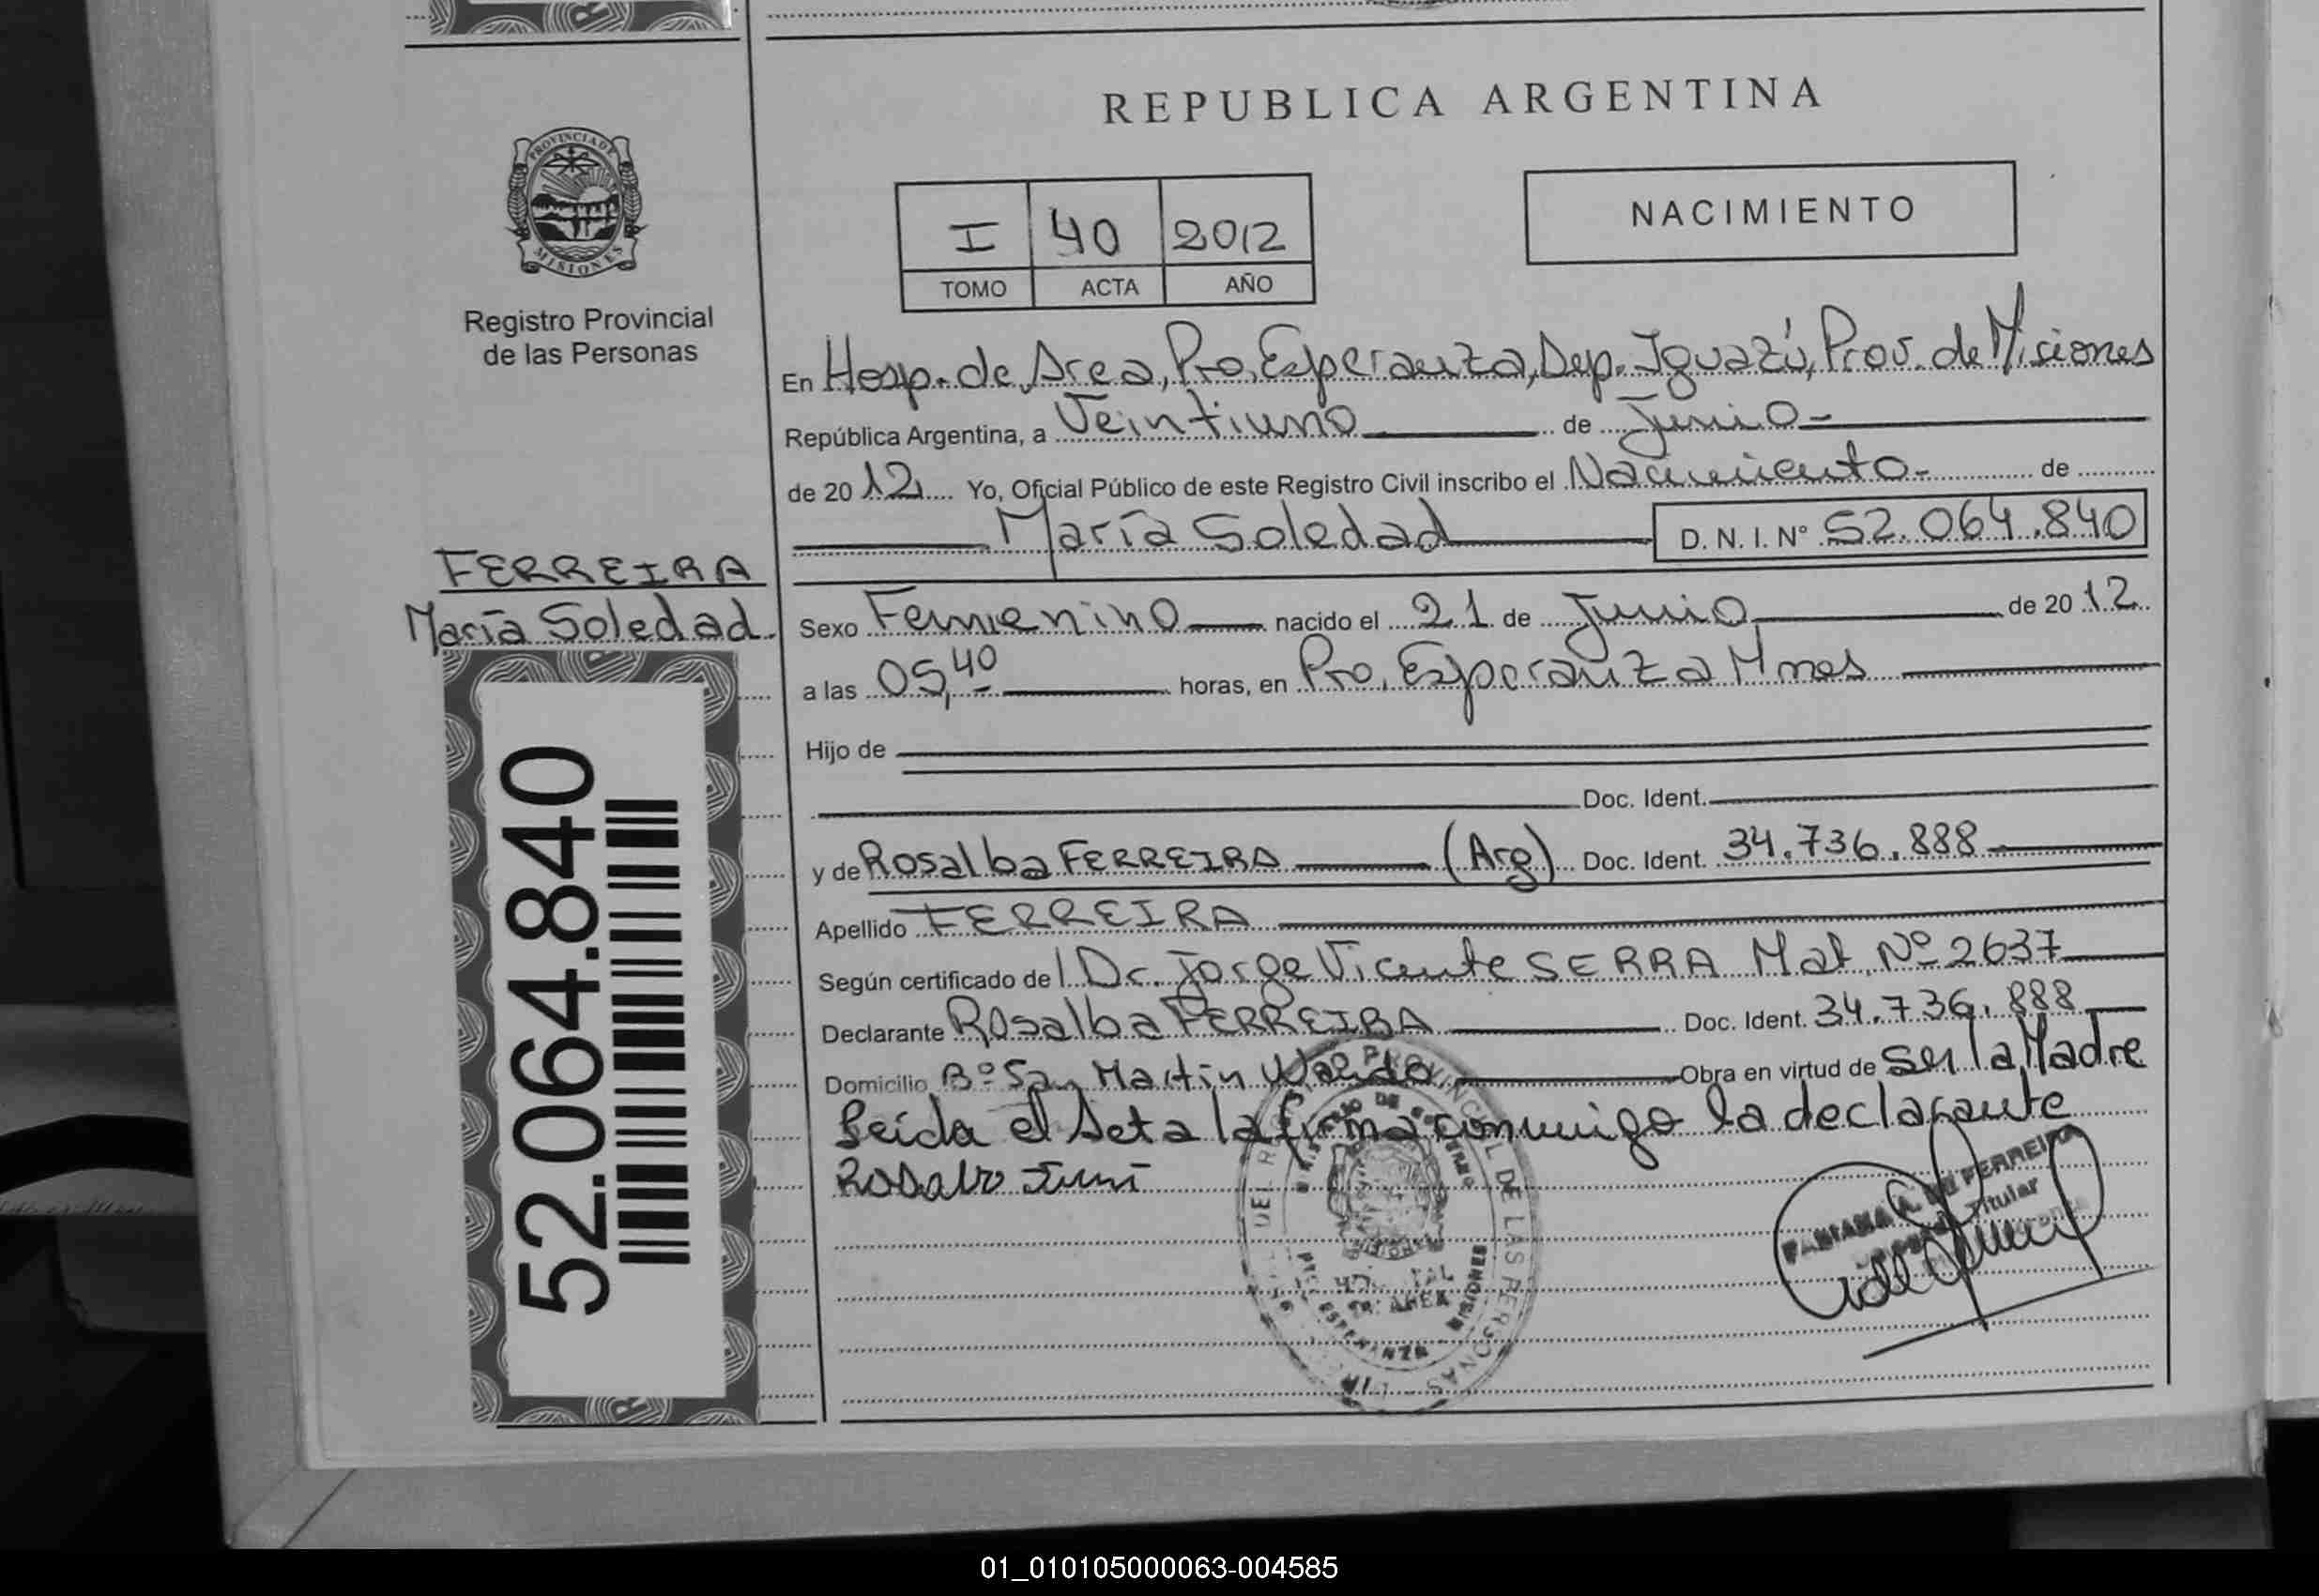 REPUBLICA ARGENTINA
PROVINCIA DE MISIONES
Registro Provincial
de las Personas
I 40 2012
TOMO ACTA AÑO
NACIMIENTO
En Hosp. de Area, Pto. Esperanza, Dep. Iguazú, Prov. de Misiones
República Argentina, a Veintiuno de Junio
de 2012 Yo, Oficial Público de este Registro Civil inscribo el Nacimiento de
María Soledad D. N. I. Nº 52.064.840
FERREIRA
María Soledad
Sexo Femenino nacido el 21 de Junio de 2012
a las 05,40 horas, en Pto. Esperanza Mnes
Hijo de
Doc. Ident.
y de Rosalba FERREIRA (Arg) Doc. Ident. 34.736.888
Apellido FERREIRA
Según certificado de l Dr. Jorge Vicente SERRA Mat. Nº 2637
Declarante Rosalba FERREIRA Doc. Ident. 34.736.888
Domicilio Bº San Martin Wanda Obra en virtud de ser la Madre
Leída el Acta la firma conmigo la declarante
52.064.840
01_010105000063-004585